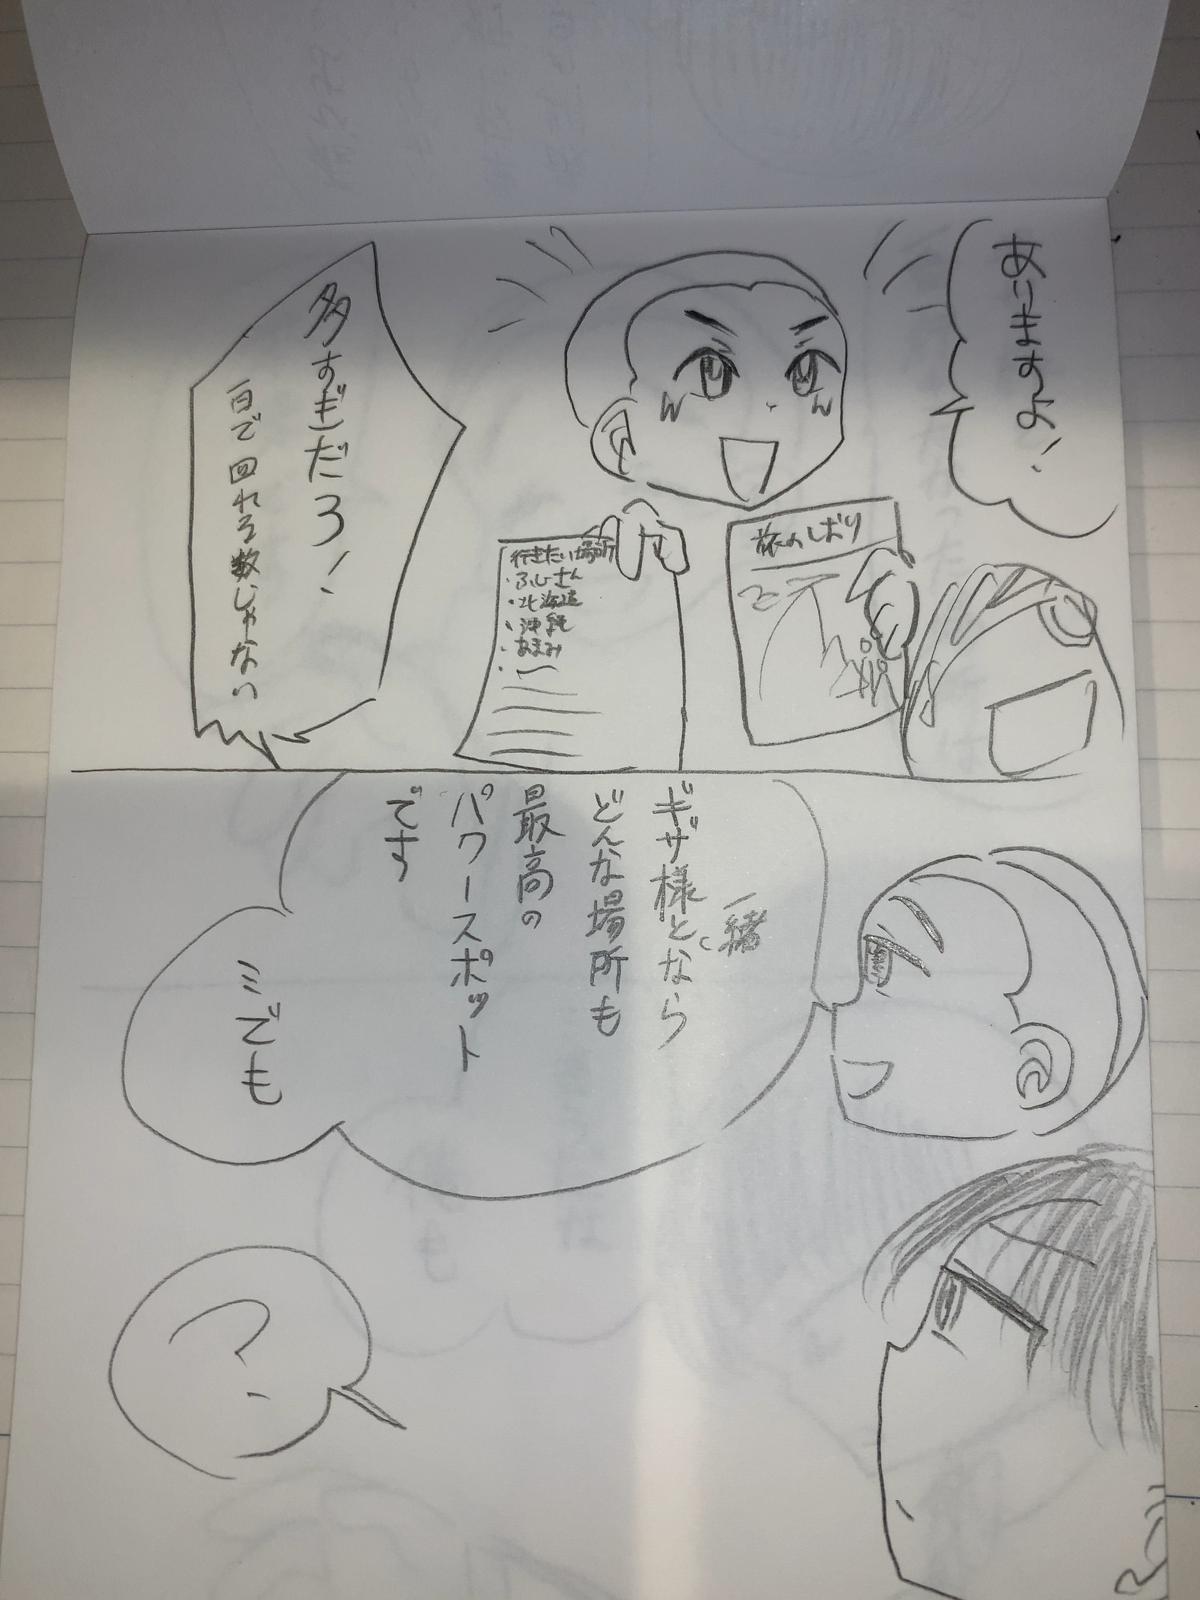 ありますよ!
旅のしおり
行きたい場所
・ふじさん
・北海道
・沖縄
・あまみ
多すぎだろ!
一日で回れる数じゃない
一緒
ギザ様となら
どんな場所も
最高の
パワースポット
です
ミでも
?